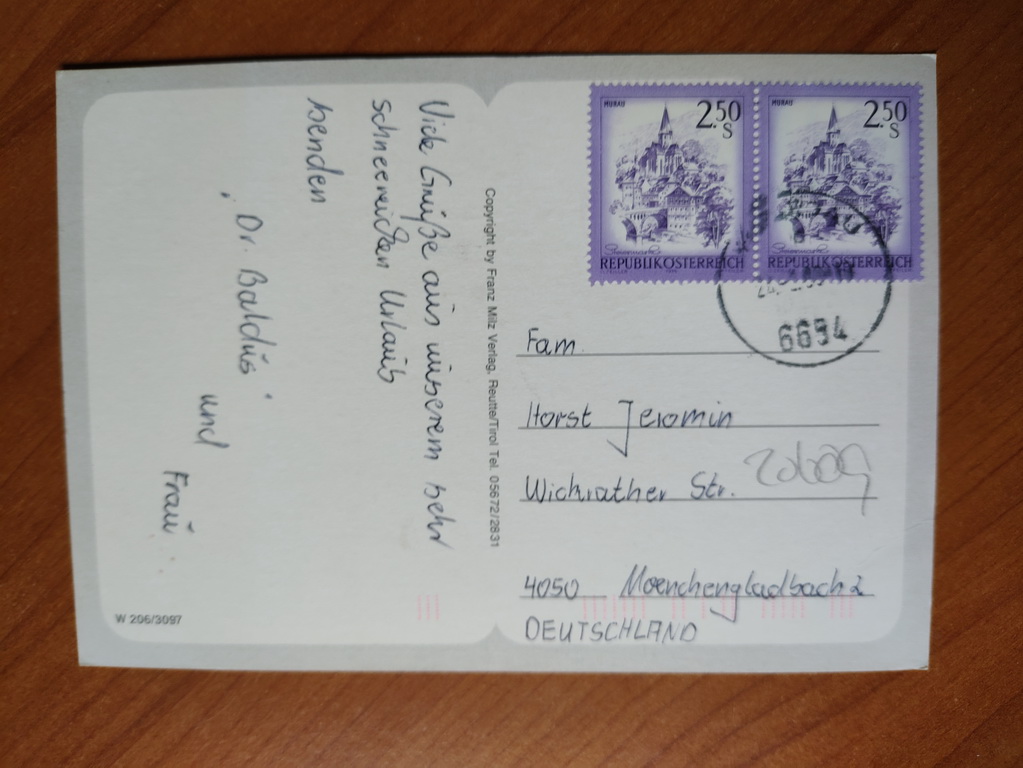 Viele Grüße aus unserem sehr
schneereichen Urlaub
senden
"Dr. Baldus"
und
Frau.
Copyright by Franz Milz Verlag, Reutte/Tirol Tel. 05672/2831
W 206/3097
MURAU
2.50
S
REPUBLIK ÖSTERREICH
MURAU
2.50
S
REPUBLIK ÖSTERREICH
6694
Fam.
Horst Jeromin
Wickrather Str.
4050 Moenchengladbach 2
DEUTSCHLAND